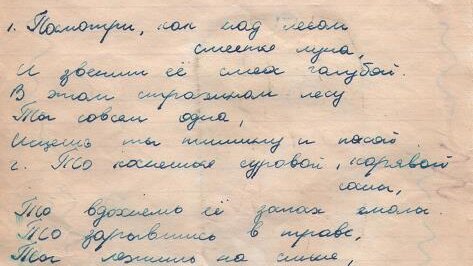 1. Посмотри, как над лесом
смеется луна,
И звенит её смех голубой.
В этом страшном лесу
Ты совсем одна,
Ищешь ты тишину и покой
2. То коснешься суровой, корявой
сосны,
То вдохнёшь её запах смолы.
То зарывшись в траве,
Ты лежишь на спине,